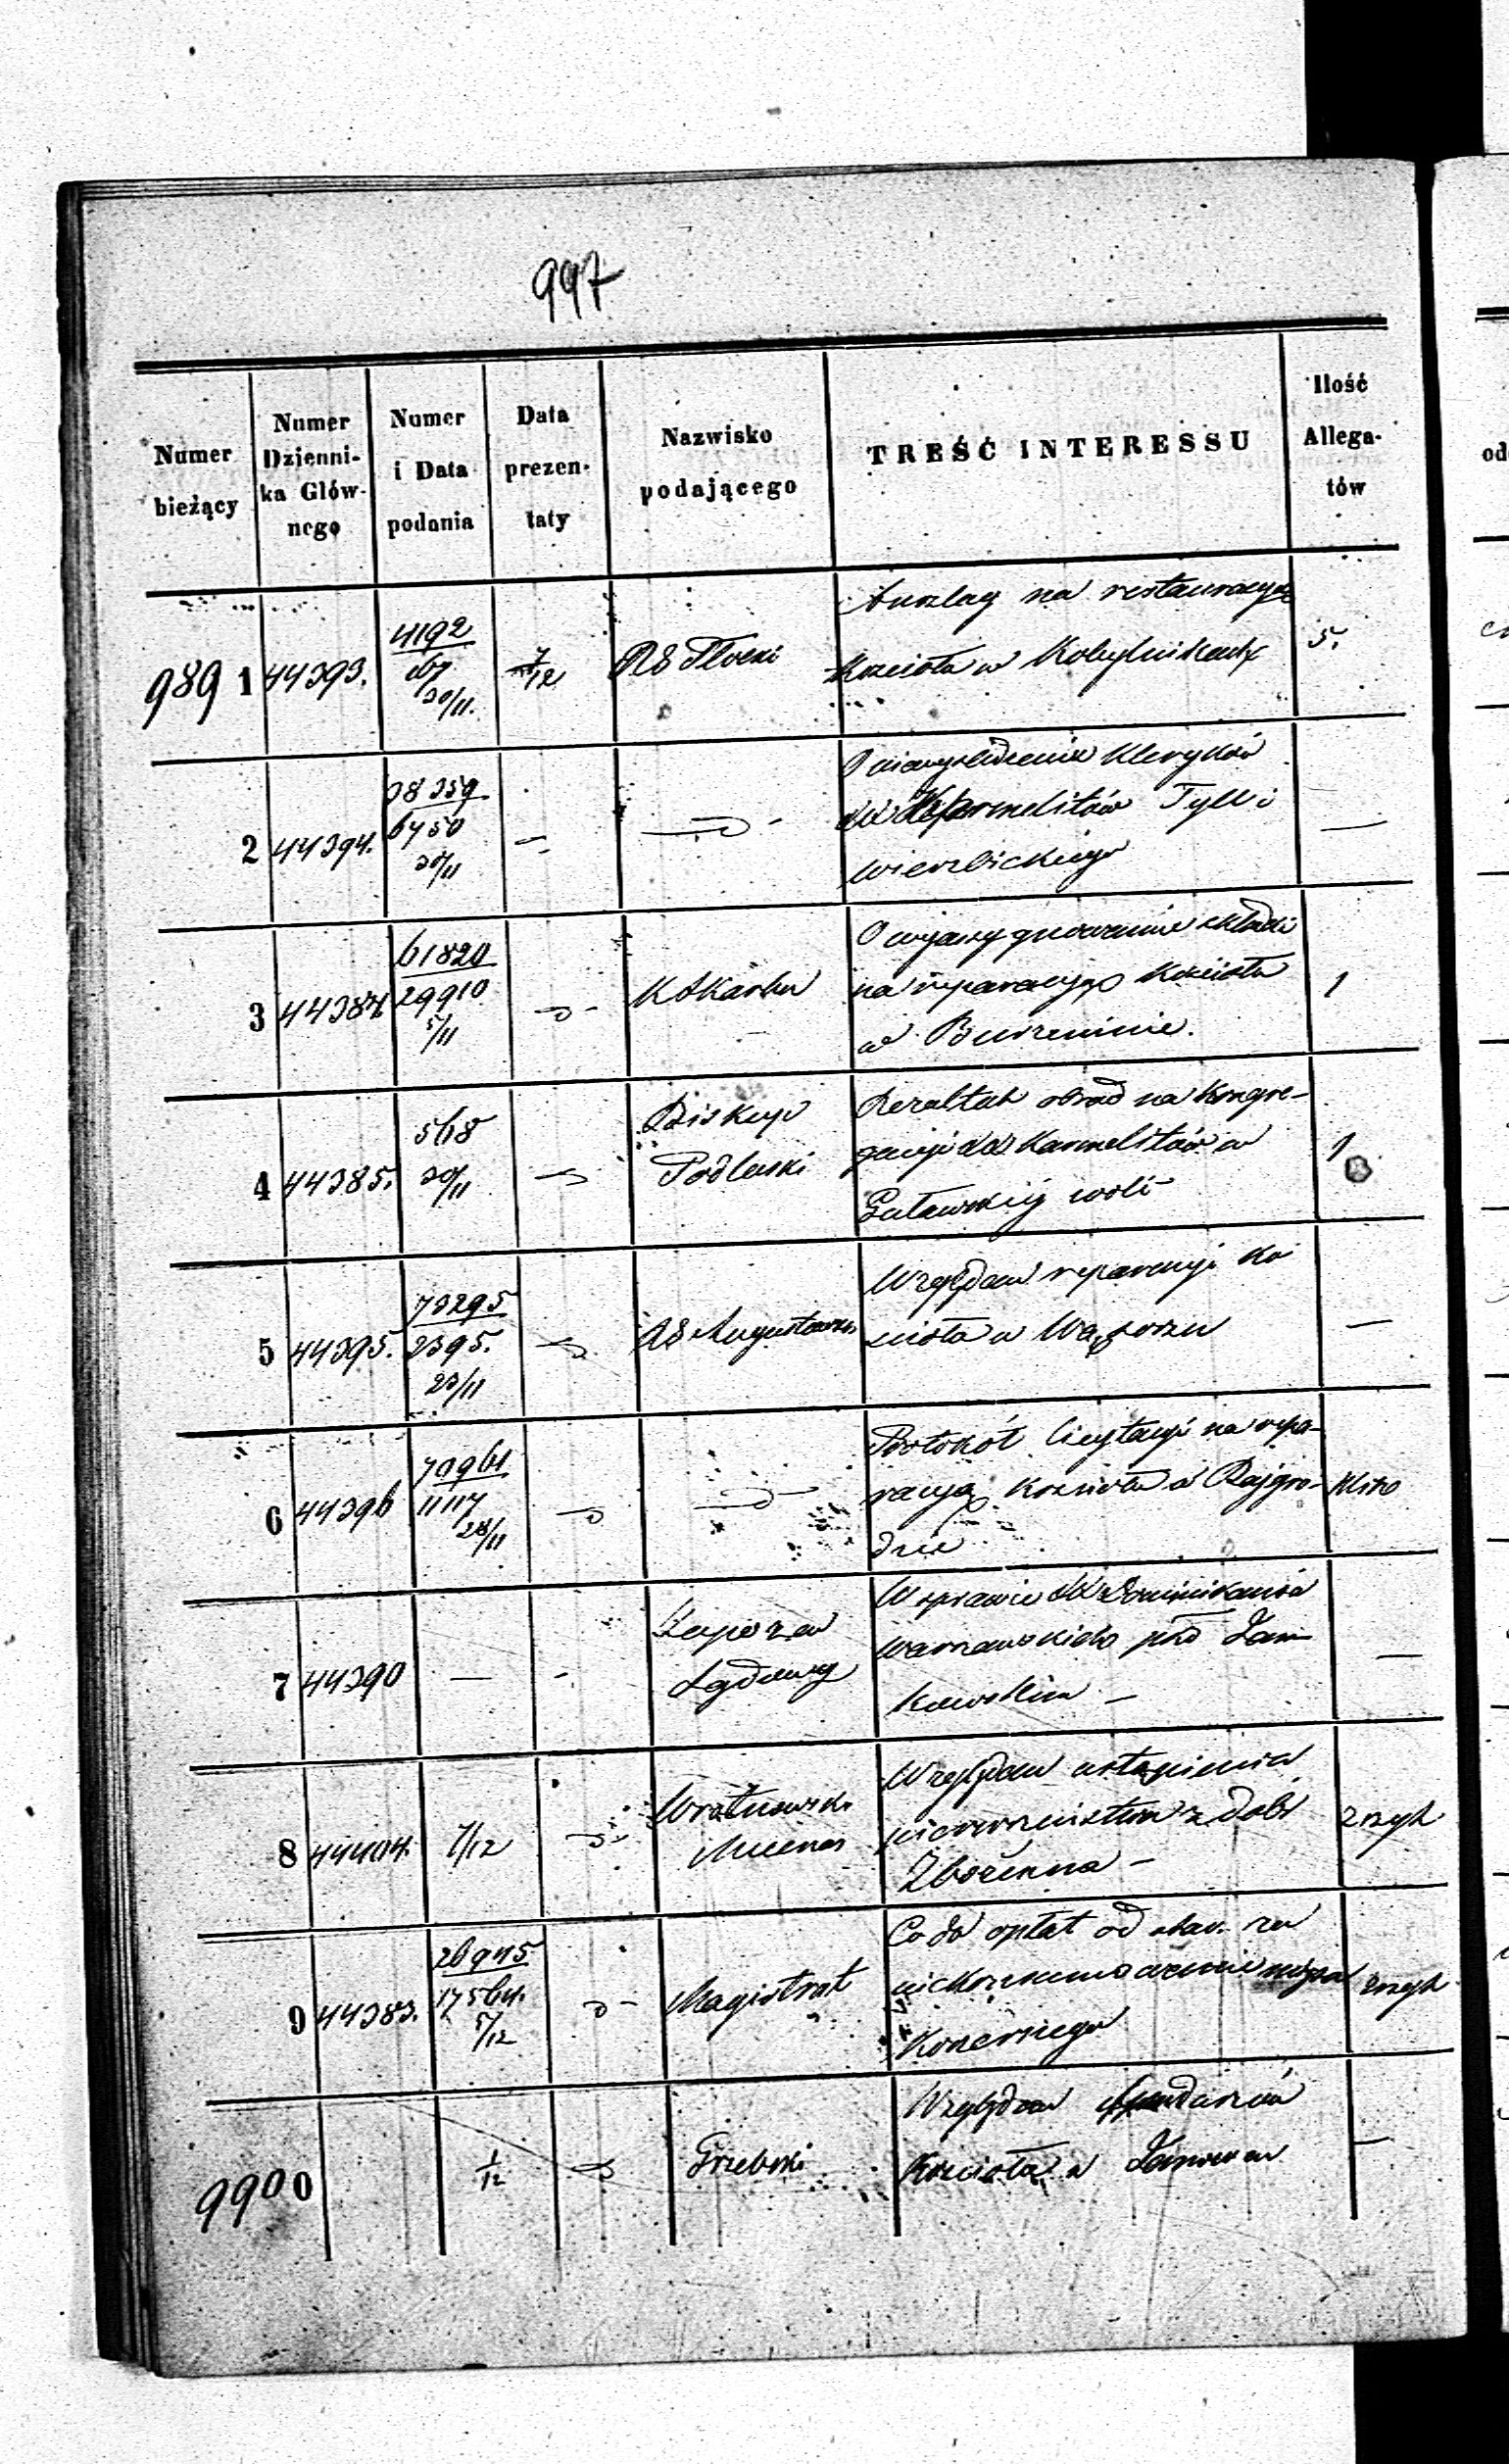 997
Numer bieżący
Numer Dzienni-ka Głów-nego
Numer i Data podania
Data prezen-taty
Nazwisko podającego
TREŚĆ INTERESSU
Ilość Allega-tów
989 1 44393. 4192 30/11. 7/12 RG Płocki
Anszlag na restauracyę
Kościoła w Kobylnikach
5.
2 44394. 38359 6450 30/11
Kleryków
XX Karmelitów Tyll i
Wierzbickiego
—
3 44384 61820 29910 5/11 K Skarbu
O wyasygnowanie składki
na reparacyę Kościoła
w Burzeninie.
1
4 44385. 568 30/11
Biskup
Podlaski
Rezultat obrad na Kongre-
gacyi XX Karmelitów w
woli
1
5 44395. 73295 2395. 23/11 RG Augustowski
Względem reparacyi Ko
ścioła w Wąsoszu
—
6 44396 70961 11117 28/11
Protokół licytacyi na repa-
racyą Kościoła w Rajgro-
dzie
7 44390 —
W sprawie XX Dominikanów
Warszawskich pko
—
8 44404. 7/12
Względem ustąpienia
z dóbr
Zbożenna —
zszyt
9 44383. 26945 17564. 5/12 Magistrat
Co do opłat od stow. za
Koszernego
zszyt
9900 1/12 Grzebski
Względem
Kościoła w
—